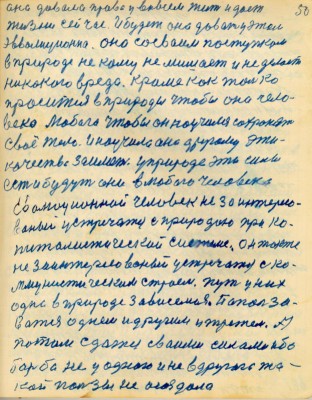 50
она давала право у во всем тем и дает
жизни сейчас. И будет она давать этой
Эволюционна. Она со своим поступком
в природе не кому не мешает и не делает
никакого вреда. Кроме как только
просится в природы чтобы она чело-
века любого чтобы он научился сохранять
своё тело. И научила она другому эти
качества займет. У природе эти силы
есть и будут они в любого человека
Эволюционной человек не заинтересо-
ваный устречаться с природою при ка-
питалистической системе. Он тоже
не заинтересованый устречаться с ко-
ммунистическим строем. Путь у них
один в природе зависемия.
одним и другим и третем. А
потом сдаться своими силами ибо
не у одного и не в другого та-
кой пользы не создала